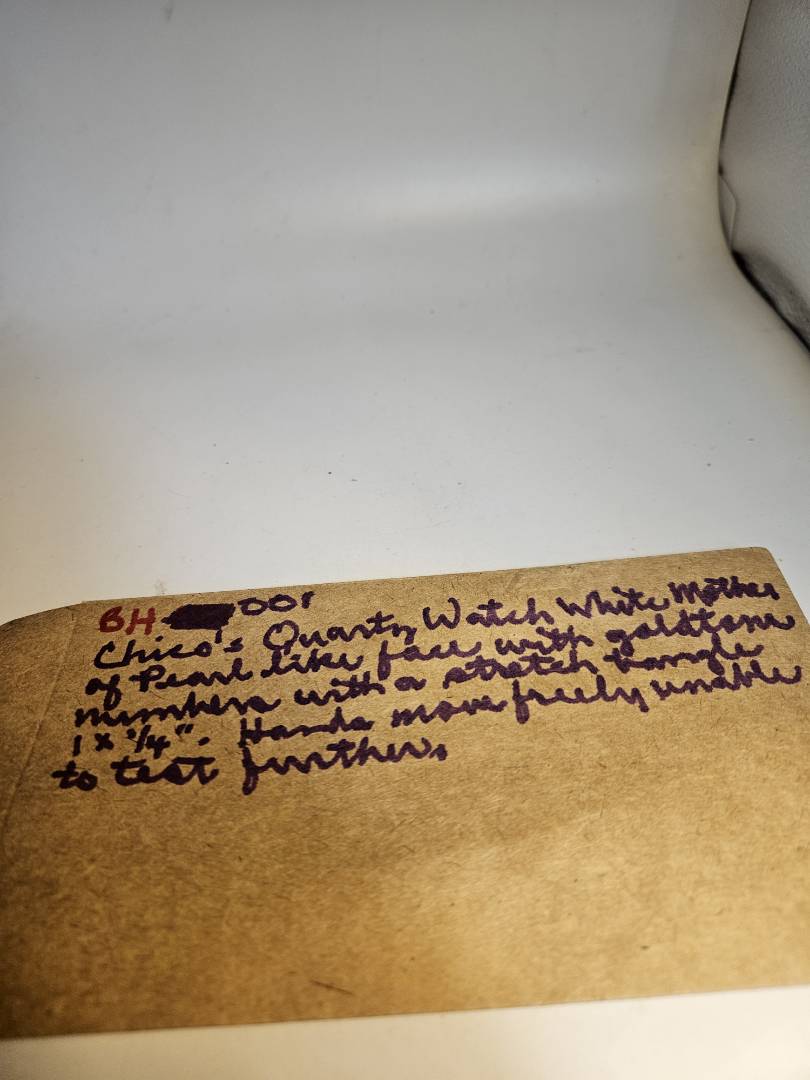 BH 001
Chico's Quartz Watch White Mother
of Pearl like face with goldtone
numbers with a stretch bangle
1 x 1/4". Hands move freely unable
to test further.